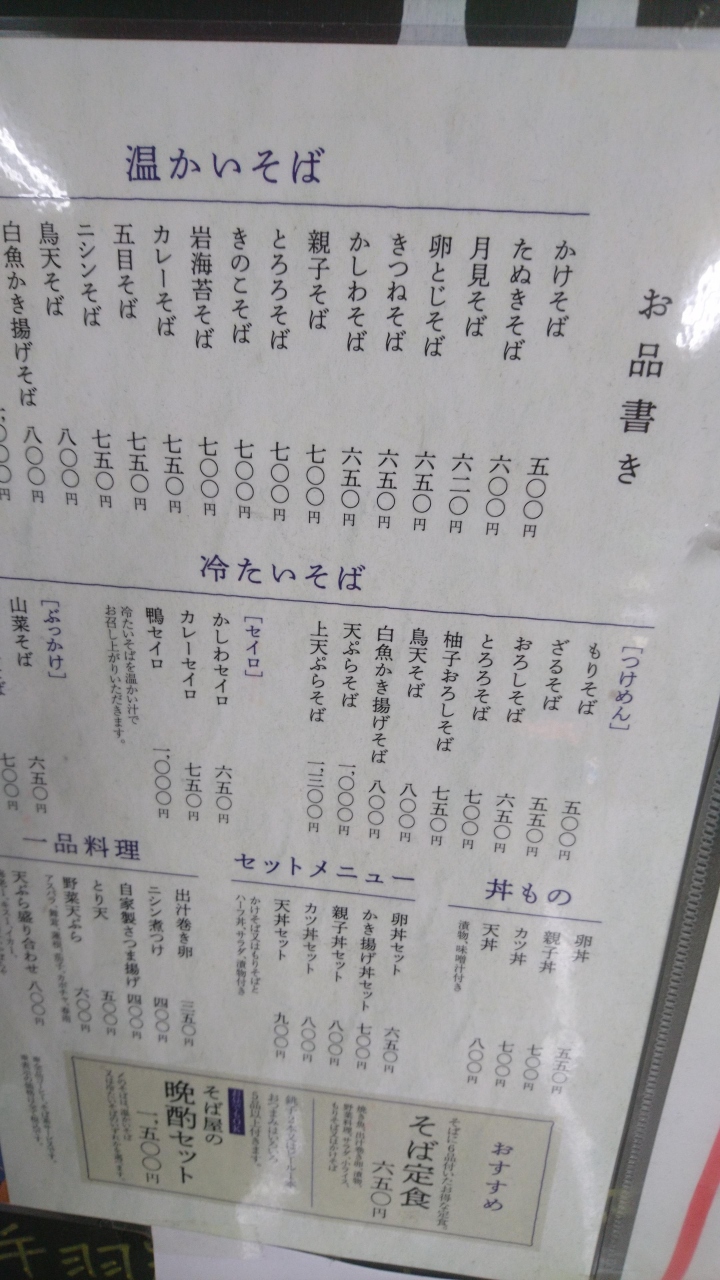 お品書き
温かいそば
かけそば 五〇〇円
たぬきそば 六〇〇円
月見そば 六二〇円
卵とじそば 六五〇円
きつねそば 六五〇円
かしわそば 六五〇円
親子そば 七〇〇円
とろろそば 七〇〇円
きのこそば 七〇〇円
岩海苔そば 七〇〇円
カレーそば 七五〇円
五目そば 七五〇円
ニシンそば 七五〇円
鳥天そば 八〇〇円
白魚かき揚げそば 八〇〇円
一,〇〇〇円
冷たいそば
[つけめん]
もりそば 五〇〇円
ざるそば 五五〇円
おろしそば 六五〇円
とろろそば 七〇〇円
柚子おろしそば 七五〇円
鳥天そば 八〇〇円
白魚かき揚げそば 八〇〇円
天ぷらそば 一,〇〇〇円
上天ぷらそば 一,三〇〇円
[セイロ]
かしわセイロ 六五〇円
カレーセイロ 七五〇円
鴨セイロ 一,〇〇〇円
冷たいそばを温かい汁で
お召し上がりいただきます。
[ぶっかけ]
山菜そば 六五〇円
七〇〇円
丼もの
卵丼 五五〇円
親子丼 七〇〇円
カツ丼 七〇〇円
天丼 八〇〇円
漬物、味噌汁付き
セットメニュー
卵丼セット 六五〇円
かき揚げ丼セット 七〇〇円
親子丼セット 八〇〇円
カツ丼セット 八〇〇円
天丼セット 九〇〇円
かけそば又はもりそばと
ハーフ丼、サラダ、漬物付き
一品料理
出汁巻き卵 三五〇円
ニシン煮つけ 四〇〇円
自家製さつま揚げ 四〇〇円
とり天 五〇〇円
野菜天ぷら 六〇〇円
天ぷら盛り合わせ 八〇〇円
おすすめ
そばに6品付いたお得な定食。
そば定食 六五〇円
そば屋の
晩酌セット 一,五〇〇円